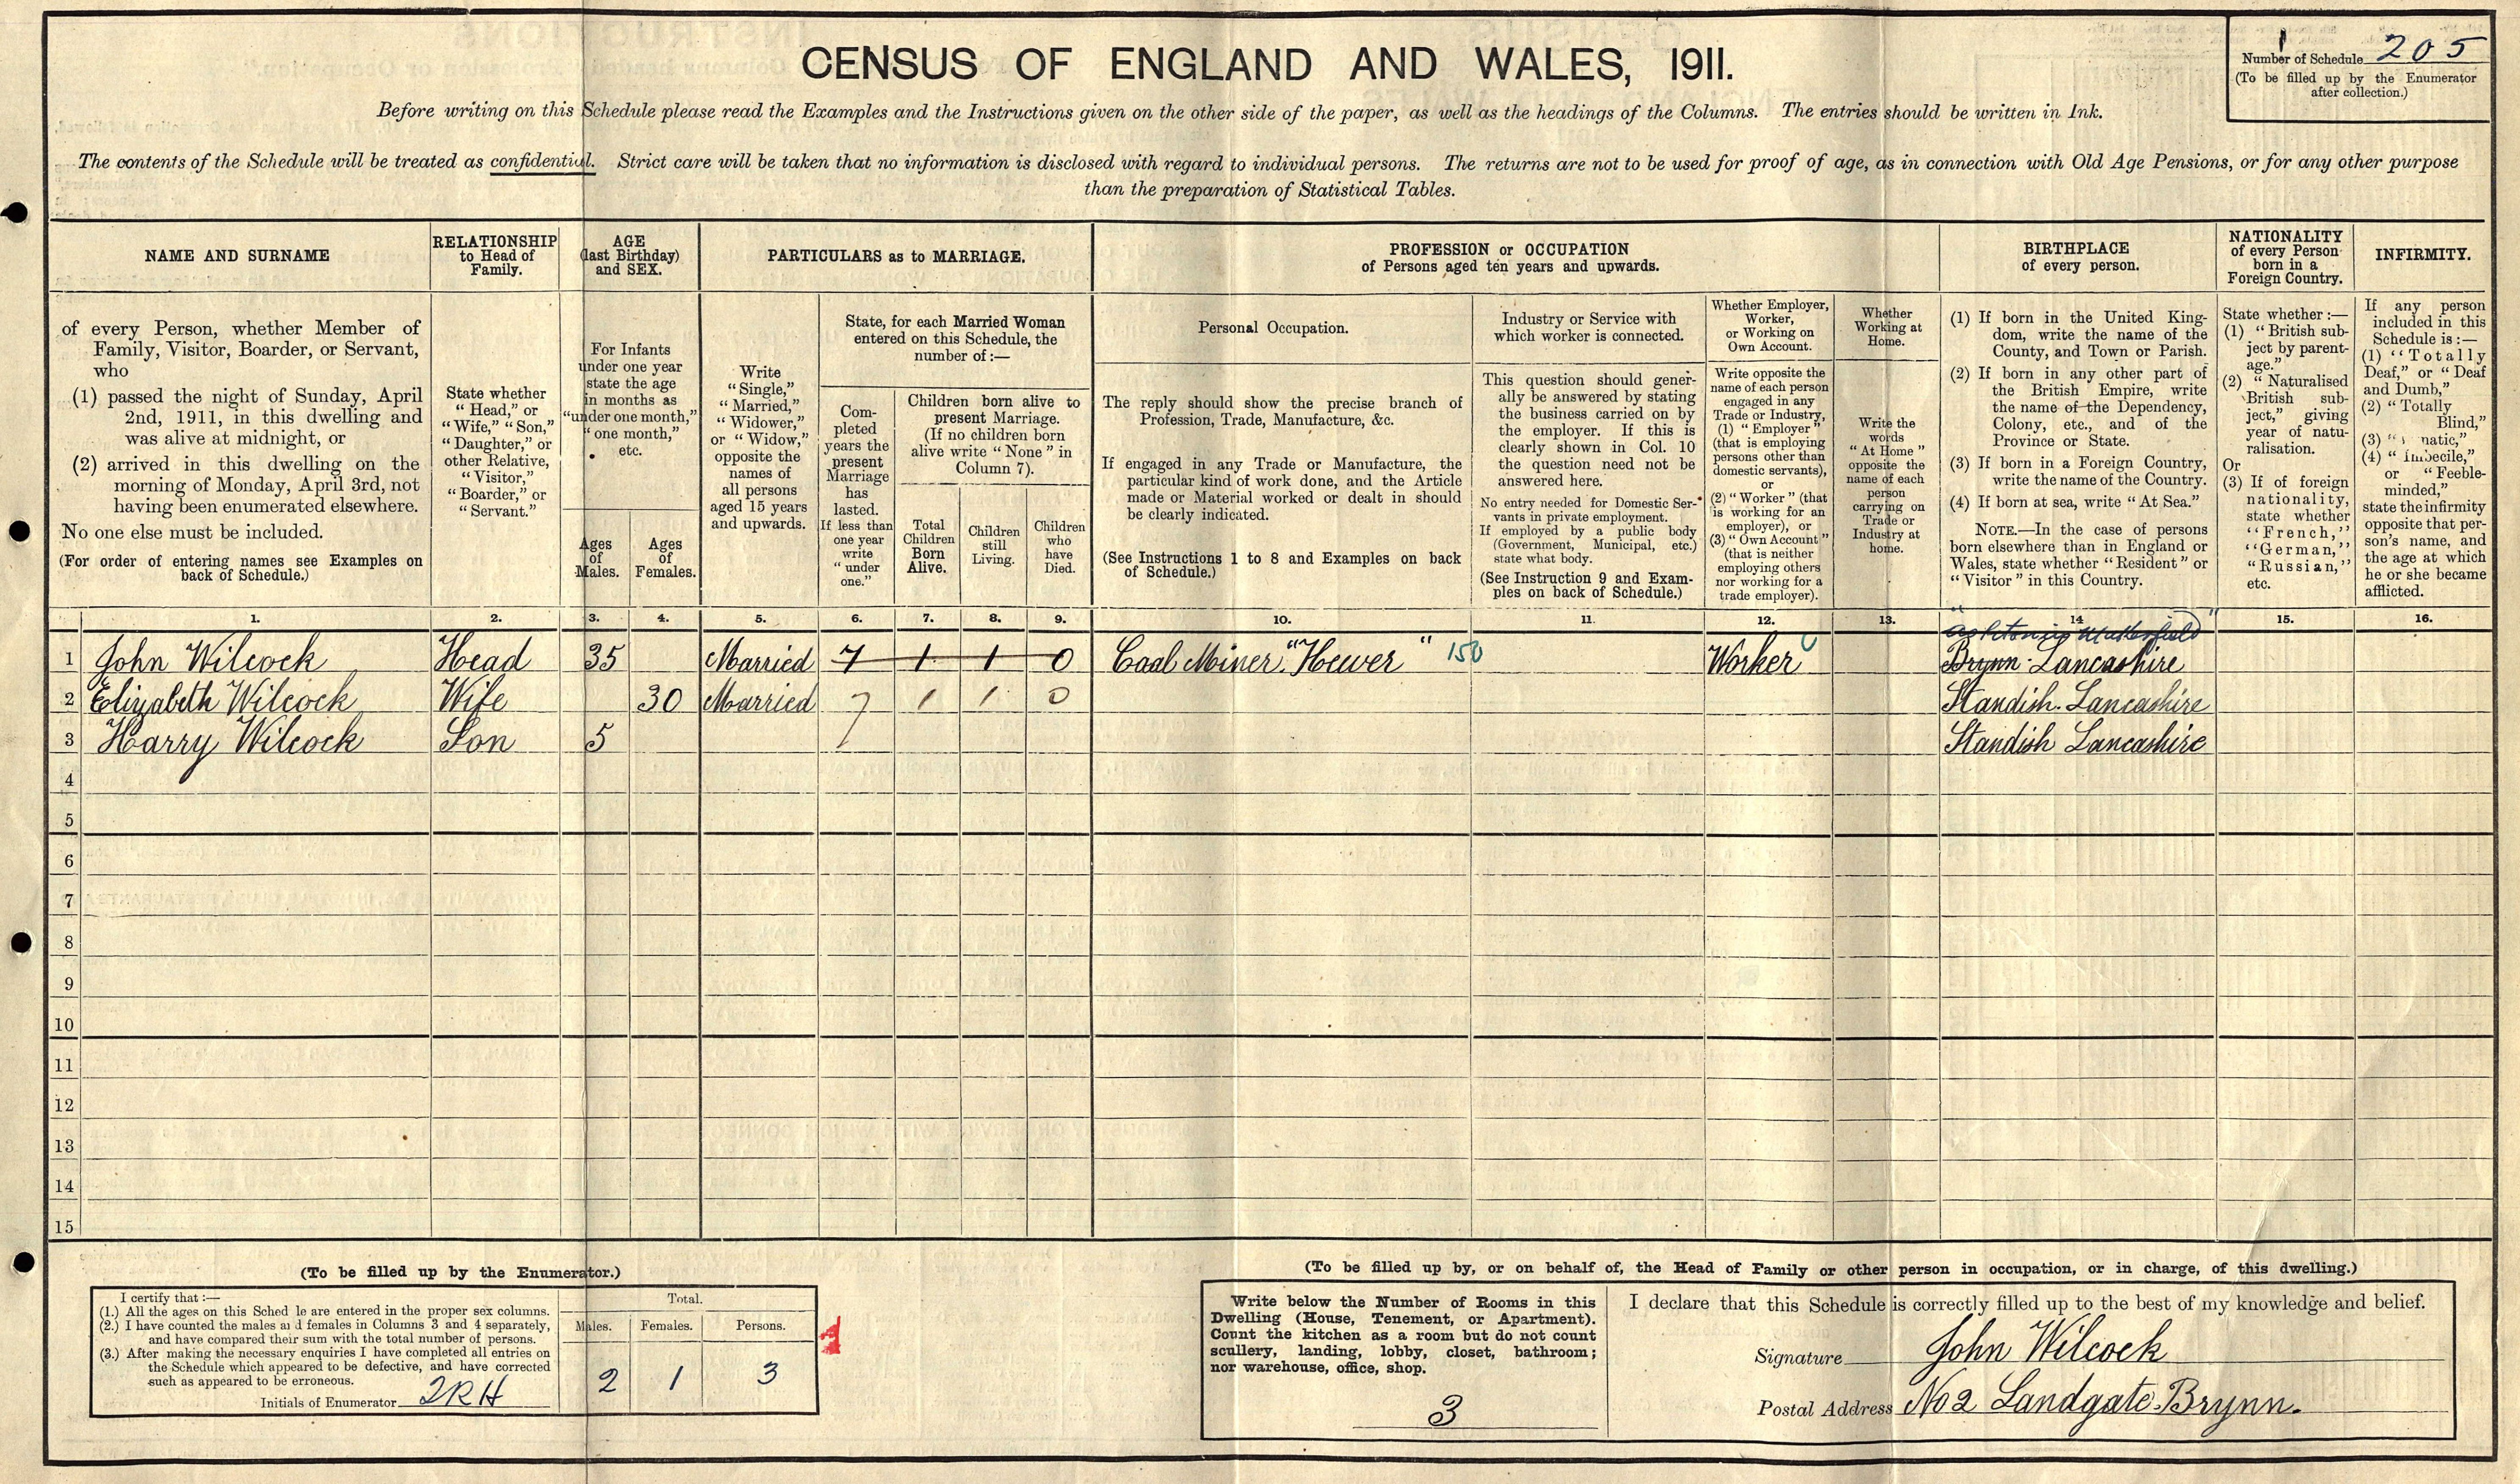 CENSUS OF ENGLAND AND WALES, 1911.
Number of Schedule 205
(To be filled up by the Enumerator
after collection.)
Before writing on this Schedule please read the Examples and the Instructions given on the other side of the paper, as well as the headings of the Columns. The entries should be written in Ink.
The contents of the Schedule will be treated as confidential. Strict care will be taken that no information is disclosed with regard to individual persons. The returns are not to be used for proof of age, as in connection with Old Age Pensions, or for any other purpose
than the preparation of Statistical Tables.
NAME AND SURNAME
of every Person, whether Member of
Family, Visitor, Boarder, or Servant,
who
(1) passed the night of Sunday, April
2nd, 1911, in this dwelling and
was alive at midnight, or
(2) arrived in this dwelling on the
morning of Monday, April 3rd, not
having been enumerated elsewhere.
No one else must be included.
(For order of entering names see Examples on
back of Schedule.)
RELATIONSHIP
to Head of
Family.
State whether
"Head," or
"Wife," "Son,"
"Daughter," or
other Relative,
"Visitor,"
"Boarder," or
"Servant."
AGE
(last Birthday)
and SEX.
For Infants
under one year
state the age
in months as
"under one month,"
"one month,"
etc.
Ages
of
Males.
Ages
of
Females.
PARTICULARS as to MARRIAGE.
Write
"Single,"
"Married,"
"Widower,"
or "Widow,"
opposite the
names of
all persons
aged 15 years
and upwards.
State, for each Married Woman
entered on this Schedule, the
number of:—
Com-
pleted
years the
present
Marriage
has
lasted.
If less than
one year
write
"under
one."
Children born alive to
present Marriage.
(If no children born
alive write "None" in
Column 7).
Total
Children
Born
Alive.
Children
still
Living.
Children
who
have
Died.
PROFESSION or OCCUPATION
of Persons aged ten years and upwards.
Personal Occupation.
The reply should show the precise branch of
Profession, Trade, Manufacture, &c.
If engaged in any Trade or Manufacture, the
particular kind of work done, and the Article
made or Material worked or dealt in should
be clearly indicated.
(See Instructions 1 to 8 and Examples on back
of Schedule.)
Industry or Service with
which worker is connected.
This question should gener-
ally be answered by stating
the business carried on by
the employer. If this is
clearly shown in Col. 10
the question need not be
answered here.
No entry needed for Domestic Ser-
vants in private employment.
If employed by a public body
(Government, Municipal, etc.)
state what body.
(See Instruction 9 and Exam-
ples on back of Schedule.)
Whether Employer,
Worker,
or Working on
Own Account.
Write opposite the
name of each person
engaged in any
Trade or Industry,
(1) "Employer"
(that is employing
persons other than
domestic servants),
or
(2) "Worker" (that
is working for an
employer), or
(3) "Own Account"
(that is neither
employing others
nor working for a
trade employer).
Whether
Working at
Home.
Write the
words
"At Home"
opposite the
name of each
person
carrying on
Trade or
Industry at
home.
BIRTHPLACE
of every person.
(1) If born in the United King-
dom, write the name of the
County, and Town or Parish.
(2) If born in any other part of
the British Empire, write
the name of the Dependency,
Colony, etc., and of the
Province or State.
(3) If born in a Foreign Country,
write the name of the Country.
(4) If born at sea, write "At Sea."
NOTE.—In the case of persons
born elsewhere than in England or
Wales, state whether "Resident" or
"Visitor" in this Country.
NATIONALITY
of every Person
born in a
Foreign Country.
State whether:—
(1) "British sub-
ject by parent-
age."
(2) "Naturalised
British sub-
ject," giving
year of natu-
ralisation.
Or
(3) If of foreign
nationality,
state whether
"French,"
"German,"
"Russian,"
etc.
INFIRMITY.
If any person
included in this
Schedule is:—
(1) "Totally
Deaf," or "Deaf
and Dumb,"
(2) "Totally
Blind,"
(3) "natic,"
(4) "Imbecile,"
or "Feeble-
minded,"
state the infirmity
opposite that per-
son's name, and
the age at which
he or she became
afflicted.
1. 2. 3. 4. 5. 6. 7. 8. 9. 10. 11. 12. 13. 14 15. 16.
"Ashton in Makerfield"
1 John Wilcock Head 35 Married 7 1 1 0 Coal Miner "Hewer" 150 Worker Brynn Lancashire
2 Elizabeth Wilcock Wife 30 Married 7 1 1 0 Standish Lancashire
3 Harry Wilcock Son 5 Standish Lancashire
4
5
6
7
8
9
10
11
12
13
14
15
(To be filled up by the Enumerator.)
I certify that:—
(1.) All the ages on this Sched le are entered in the proper sex columns.
(2.) I have counted the males and females in Columns 3 and 4 separately,
and have compared their sum with the total number of persons.
(3.) After making the necessary enquiries I have completed all entries on
the Schedule which appeared to be defective, and have corrected
such as appeared to be erroneous.
Initials of Enumerator
Total.
Males. Females. Persons.
2 1 3
(To be filled up by, or on behalf of, the Head of Family or other person in occupation, or in charge, of this dwelling.)
Write below the Number of Rooms in this
Dwelling (House, Tenement, or Apartment).
Count the kitchen as a room but do not count
scullery, landing, lobby, closet, bathroom;
nor warehouse, office, shop.
3
I declare that this Schedule is correctly filled up to the best of my knowledge and belief.
Signature John Wilcock
Postal Address No 2 Landgate Brynn.